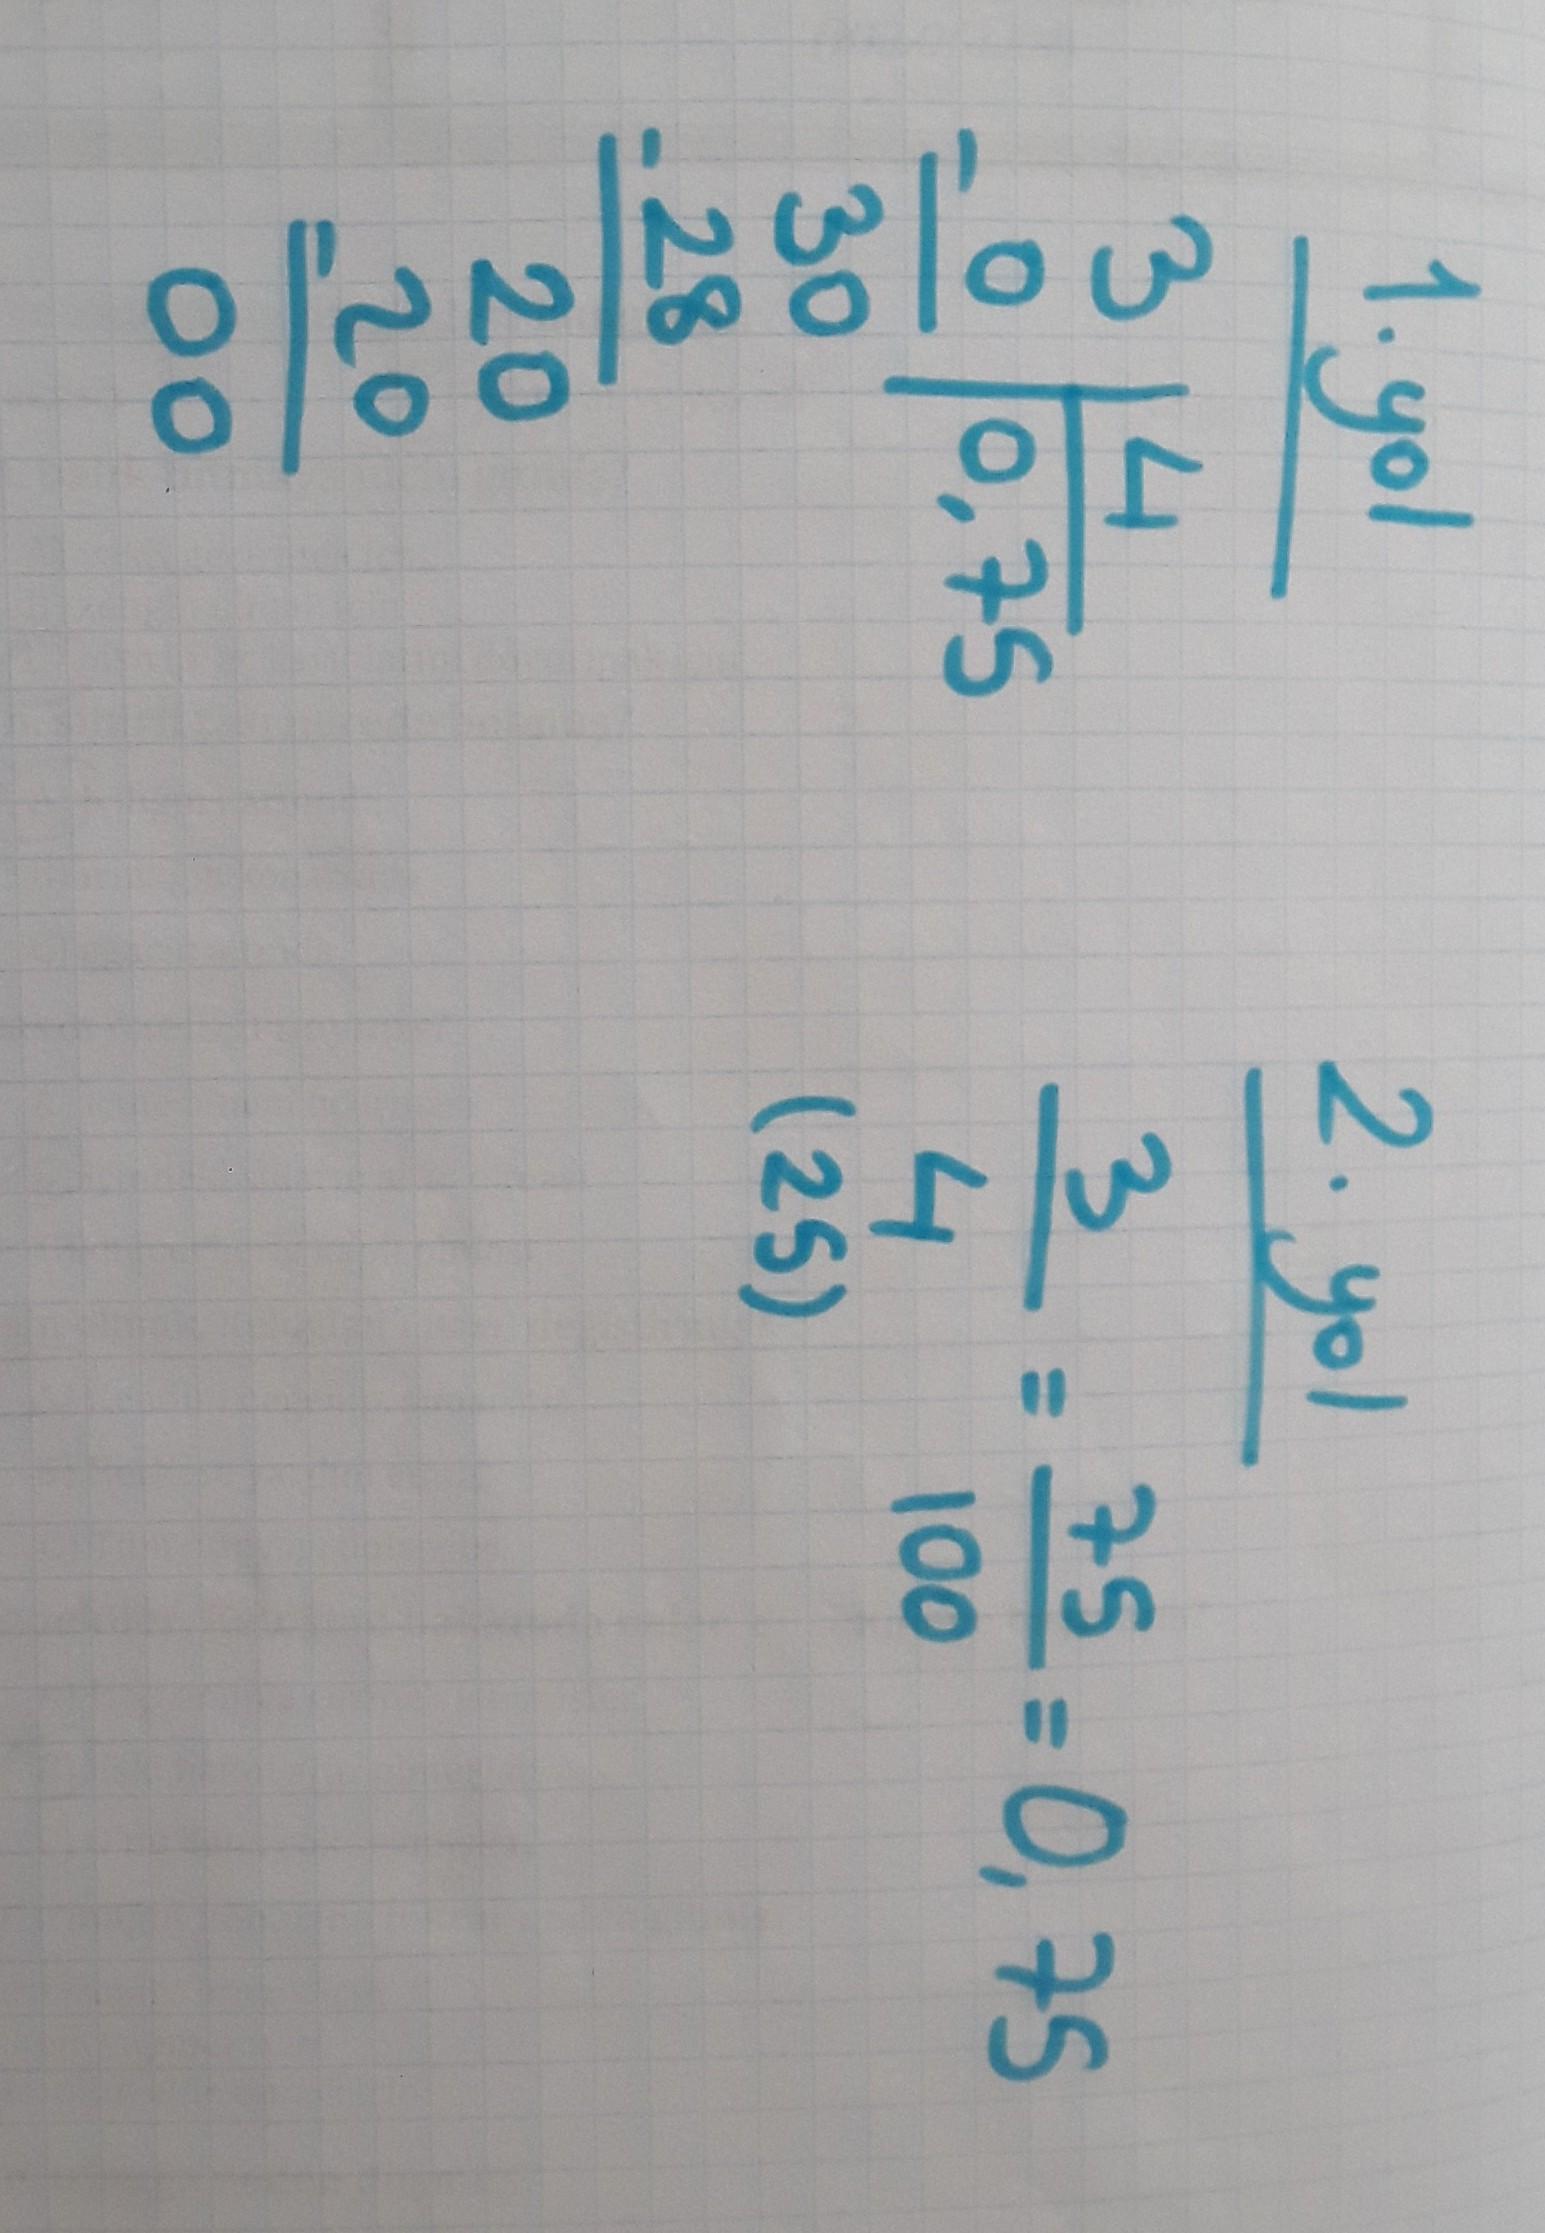 1. yol
3 | 4
- 0 | 0,75
30
- 28
20
- 20
00
2. yol
3/4 = 75/100 = 0,75
(25)